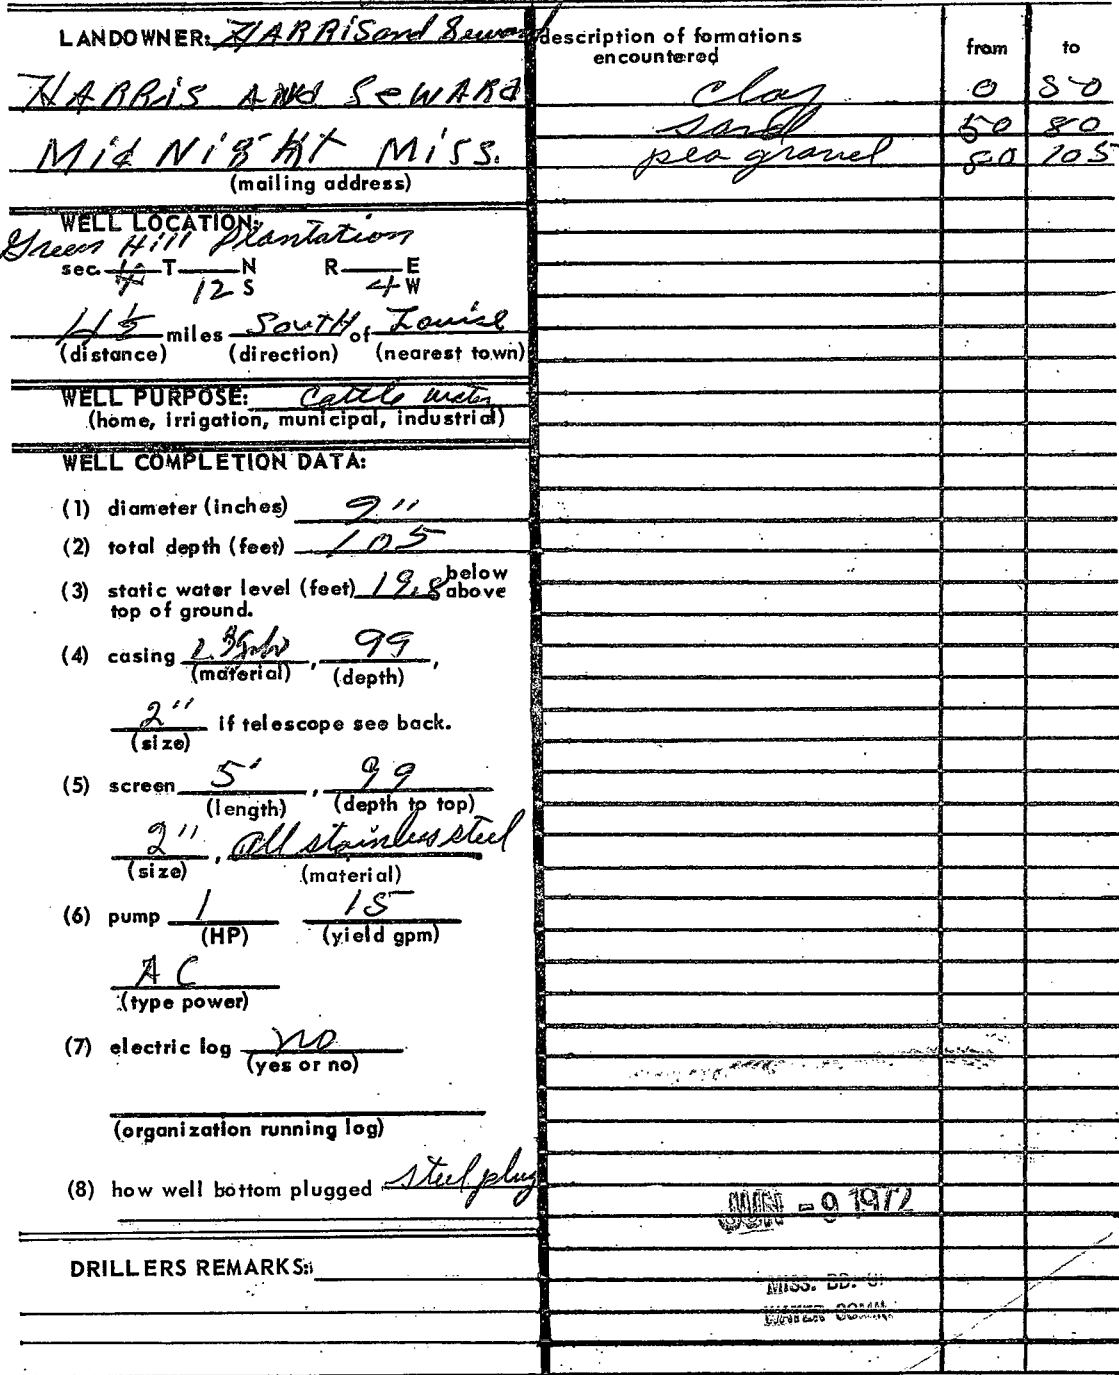 LANDOWNER: HARRIS and Seward
HARRIS AND SEWARD
MidNight Miss.
(mailing address)
WELL LOCATION:
Green Hill Plantation
sec. T N R E
12 S 4 W
4 1/2 miles South of Louise
(distance) (direction) (nearest town)
WELL PURPOSE: Cattle water
(home, irrigation, municipal, industrial)
WELL COMPLETION DATA:
(1) diameter (inches) 2"
(2) total depth (feet) 105
(3) static water level (feet) 19.8 below
above
top of ground.
(4) casing , 99 ,
(material) (depth)
2" if telescope see back.
(size)
(5) screen 5' , 99
(length) (depth to top)
2" , all stainless steel
(size) (material)
(6) pump 1 15
(HP) (yield gpm)
A C
(type power)
(7) electric log no
(yes or no)
(organization running log)
(8) how well bottom plugged steel plug
DRILLERS REMARKS:
description of formations
encountered
from to
clay 0 50
sand 50 80
pea gravel 80 105
JUN - 9 1972
MISS. BD. OF
WATER COMM.